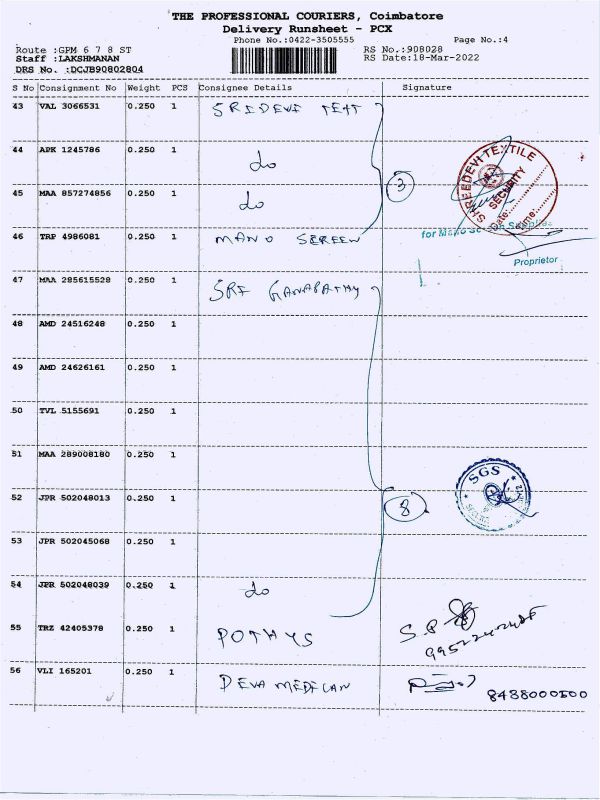 THE PROFESSIONAL COURIERS, Coimbatore
Delivery Runsheet - PCX
Phone No.:0422-3505555 Page No.:4
Route :GPM 6 7 8 ST RS No.:908028
Staff :LAKSHMANAN RS Date:18-Mar-2022
DRS No. :DCJB90802804
S No Consignment No Weight PCS Consignee Details Signature
43 VAL 3066531 0.250 1 SRIDEVI TEXT
44 APK 1245786 0.250 1 do
45 MAA 857274856 0.250 1 do
3
SHREEDEVI TEXTILE
SECURITY
Date:
Name:
46 TRP 4986081 0.250 1 MANO SCREEN
for Mano
Proprietor
47 MAA 285615528 0.250 1 SRI GANAPATHY
48 AMD 24516248 0.250 1
49 AMD 24626161 0.250 1
50 TVL 5155691 0.250 1
51 MAA 289008180 0.250 1
52 JPR 502048013 0.250 1
8
SGS
53 JPR 502045068 0.250 1
54 JPR 502048039 0.250 1 do
55 TRZ 42405378 0.250 1 POTHYS S.P
56 VLI 165201 0.250 1 DEVA MEDICAN
8488000500